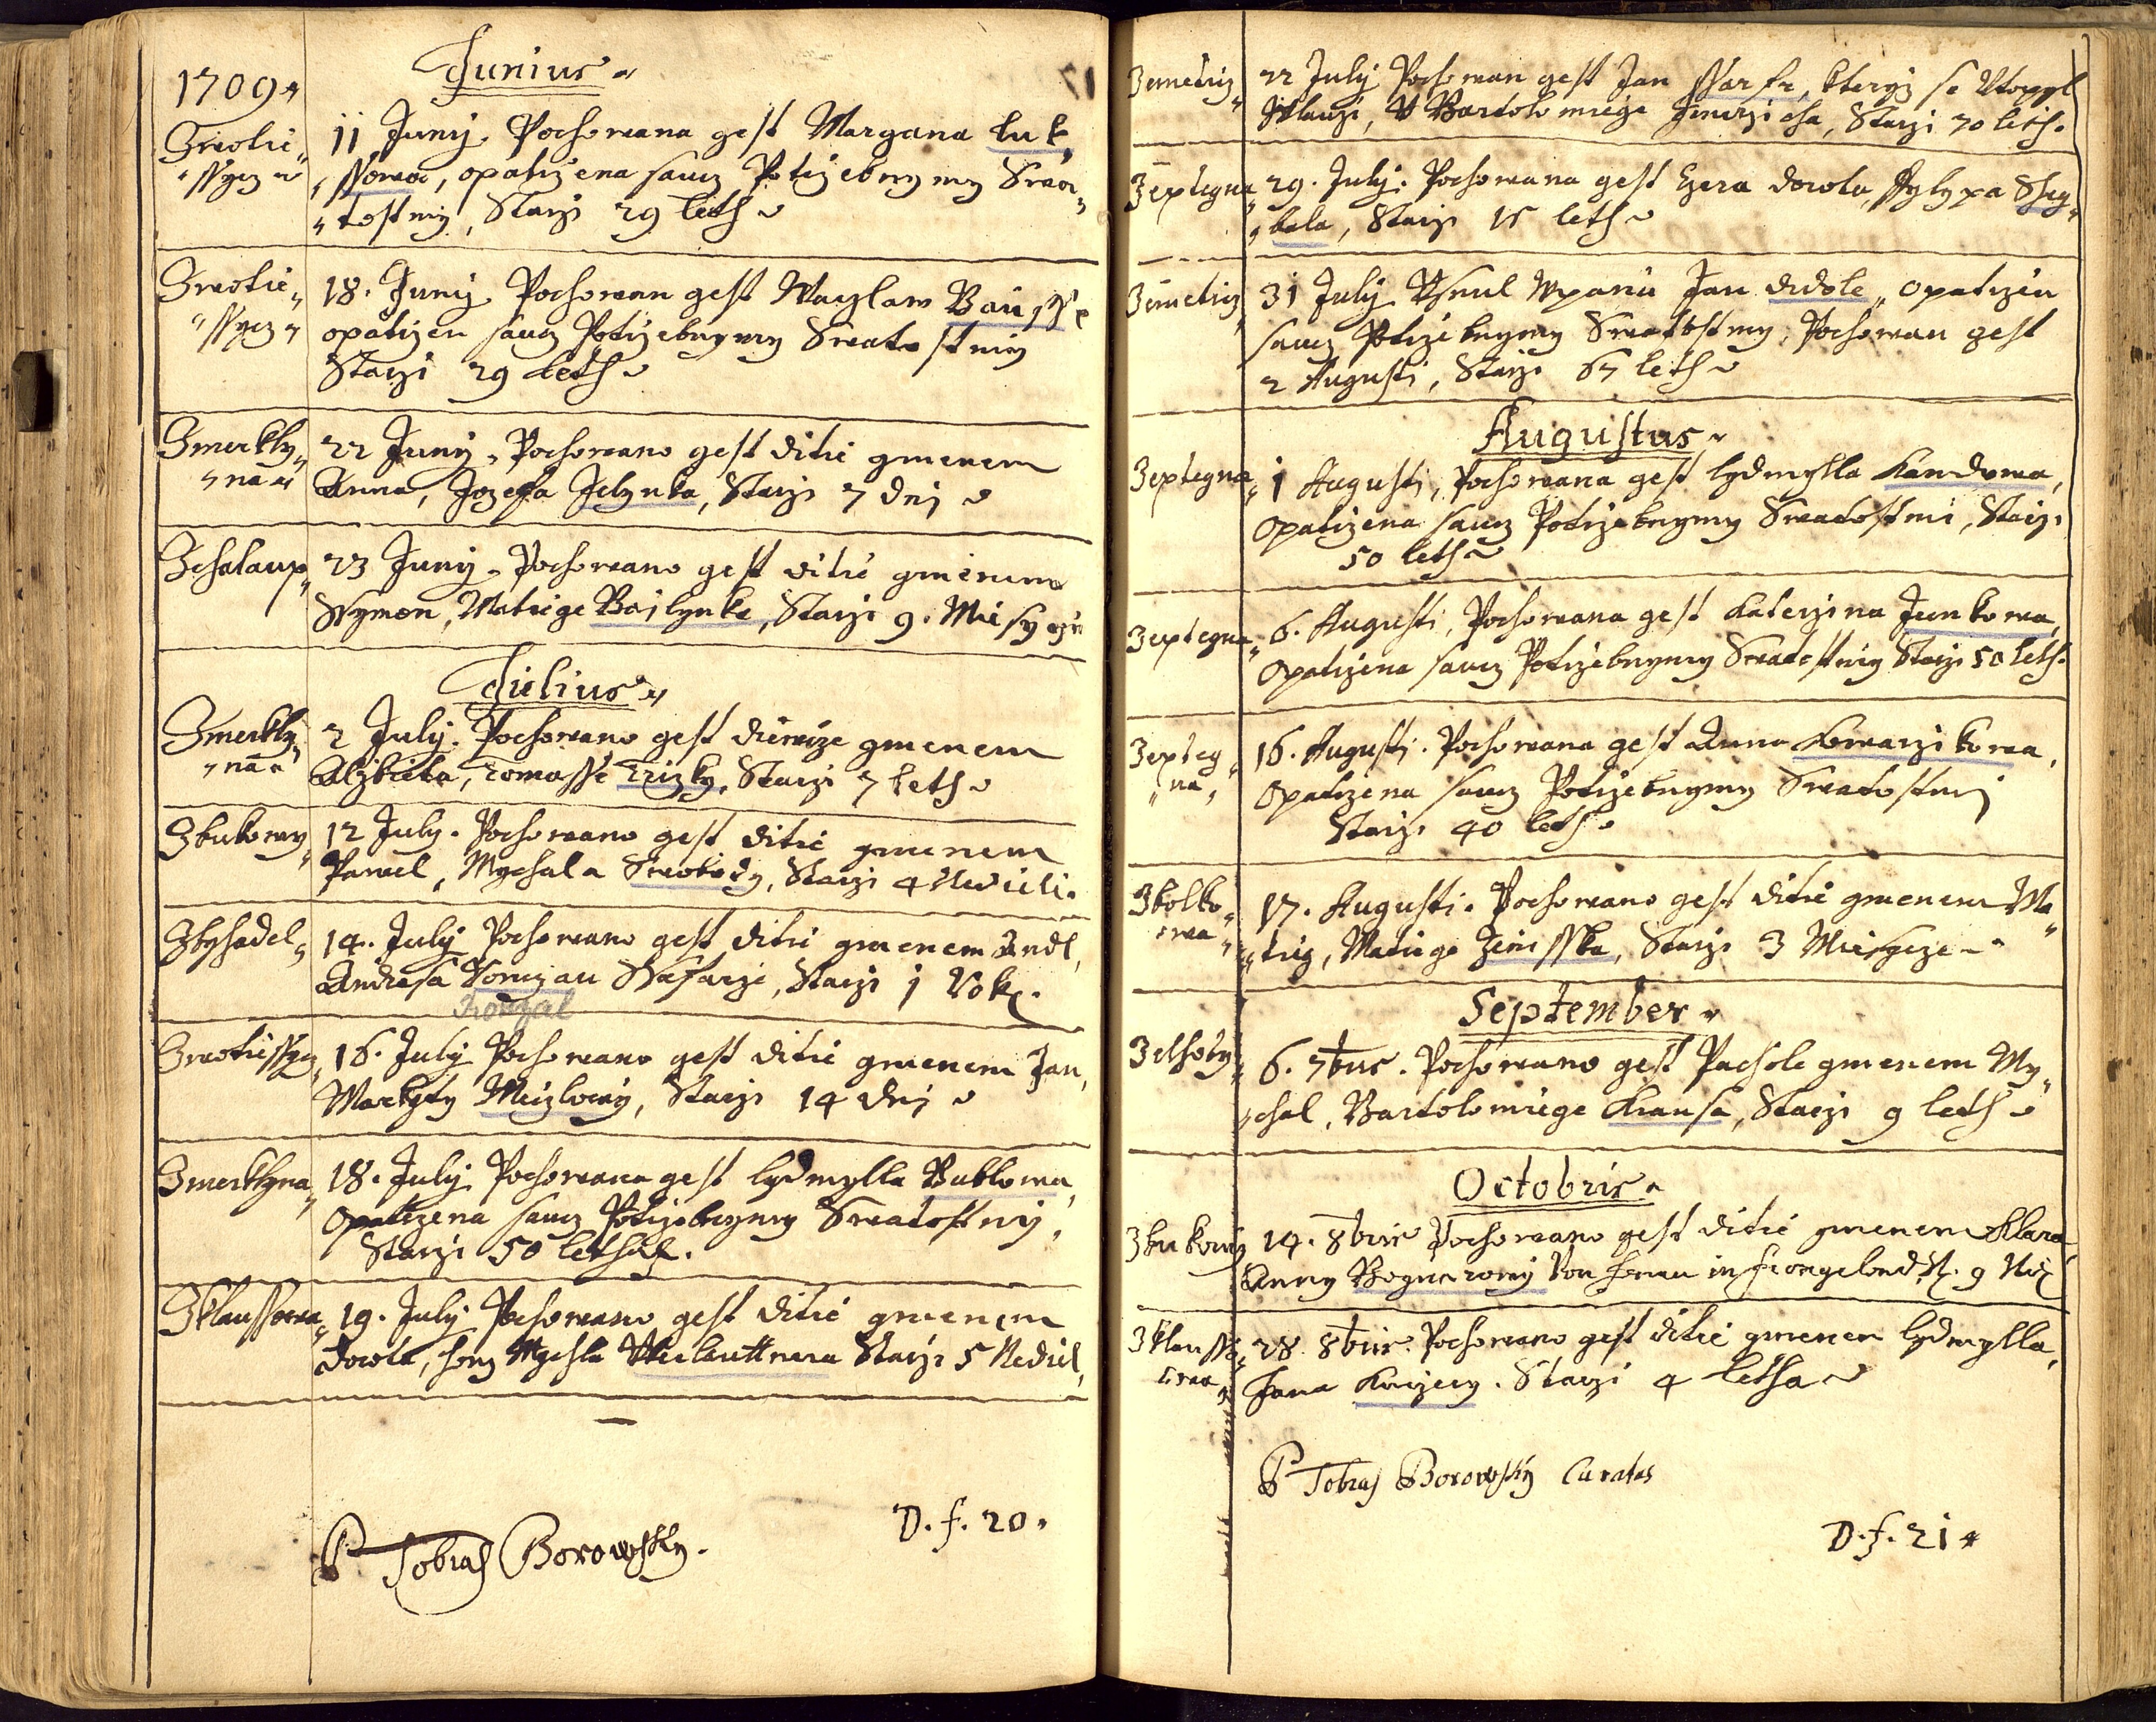 1709
Junius
Zwotie
ssycz
11 Juny Pochowana gest Margana Luk
ssowa, opatrzena sauc Potrzebnymy Swa
tostmy, Starzi 29 leth
Zwotie
ssycz
18. Juny Pochowan gest Waclaw
opatrzen sauc Potrzebnymy Swatostmy
Starzi 29 leth
Zmerkly
na
22 Juny Pochowano gest ditie gmenem
Anna, Jozeffa Jelynka, Starzi 7 dnj
Zchalaup
23 Juny Pochowano gest ditie gmenem
Ssymon, Matiege Bajlynka, Starzi 9. Miesycz
Julius
Zmerkly
na
2 July. Pochowano gest diewcze gmenem
Alzbieta, Tomasse Trizky, Starzi 7 leth
Zbukowy
12 July. Pochowano gest ditie gmenem
Pawel, Mychala Swobody, Starzi 4 Nedieli.
Zbyhadel
14. July Pochowano gest ditie gmenem Andl,
Andresa Ssafarze, Starzi 1 Rok.
Kronzal
Zwotiessycz
16. July Pochowano gest ditie gmenem Jan,
Markyty Meizlowy, Starzi 14 dnj
Zmerklyna
18. July Pochowana gest lydmylla Bublowa,
Opatrzena sauc Potrzebnymy Swatostmy,
Starzi 50 leth.
Zklaussowa
19. July Pochowano gest ditie gmenem
Dorota, Mychla Starzi 5 Nediel,
P. Tobias Borowsky.
D. f. 20.
17
Zemetin
22 July Pochowan gest Jan Ssarfr, kteryz se Utopyl
Wklauzi, U Bartolomiege Jenerzicha, Starzi 70 leth.
Zeptegna
29. July. Pochowana gest Czera Dorota, Fylypa Shey
bala, Starzi 15 leth
Zemetin
31 July Usnul Wpanu Jan didole, opatrzen
sauc Potrzebnymy Swatostmy, Pochowan gest
2 Augusti, Starzi 67 leth
Augustus
Zeptegna
1 Augusti, Pochowana gest lydmylla Kandowa,
Opatrzena sauc Potrzebnymy Swatostmi, Starzi
50 leth
Zeptegna
6. Augusti, Pochowana gest Katerzina Junkowa,
Opatrzena sauc Potrzebnymy Swatostmy Starzi 50 leth.
Zepteg
na
16. Augusti. Pochowana gest Anna Kowarzikowa,
Opatrzena sauc Potrzebnymy Swatostmj
Starzi 40 leth
Zbolko
wa
17. Augusti. Pochowano gest ditie gmenem Ma
tieg, Matiege Zenisska, Starzi 3 Miesycze
September
Zelhoty
6. 7bris. Pochowano gest Pachole gmenem My
chal, Bartolomiege Krausa, Starzi 9 leth
Octobris
Zbukowy
14. 8bris Pochowano gest ditie gmenem Klara,
Anny Von in 9 Ned
Zklausso
wa
28. 8bris. Pochowano gest ditie gmenem lydmylla,
Jana Krizery. Starzi 4 letha
P Tobias Borowsky Curatus
D. f. 21